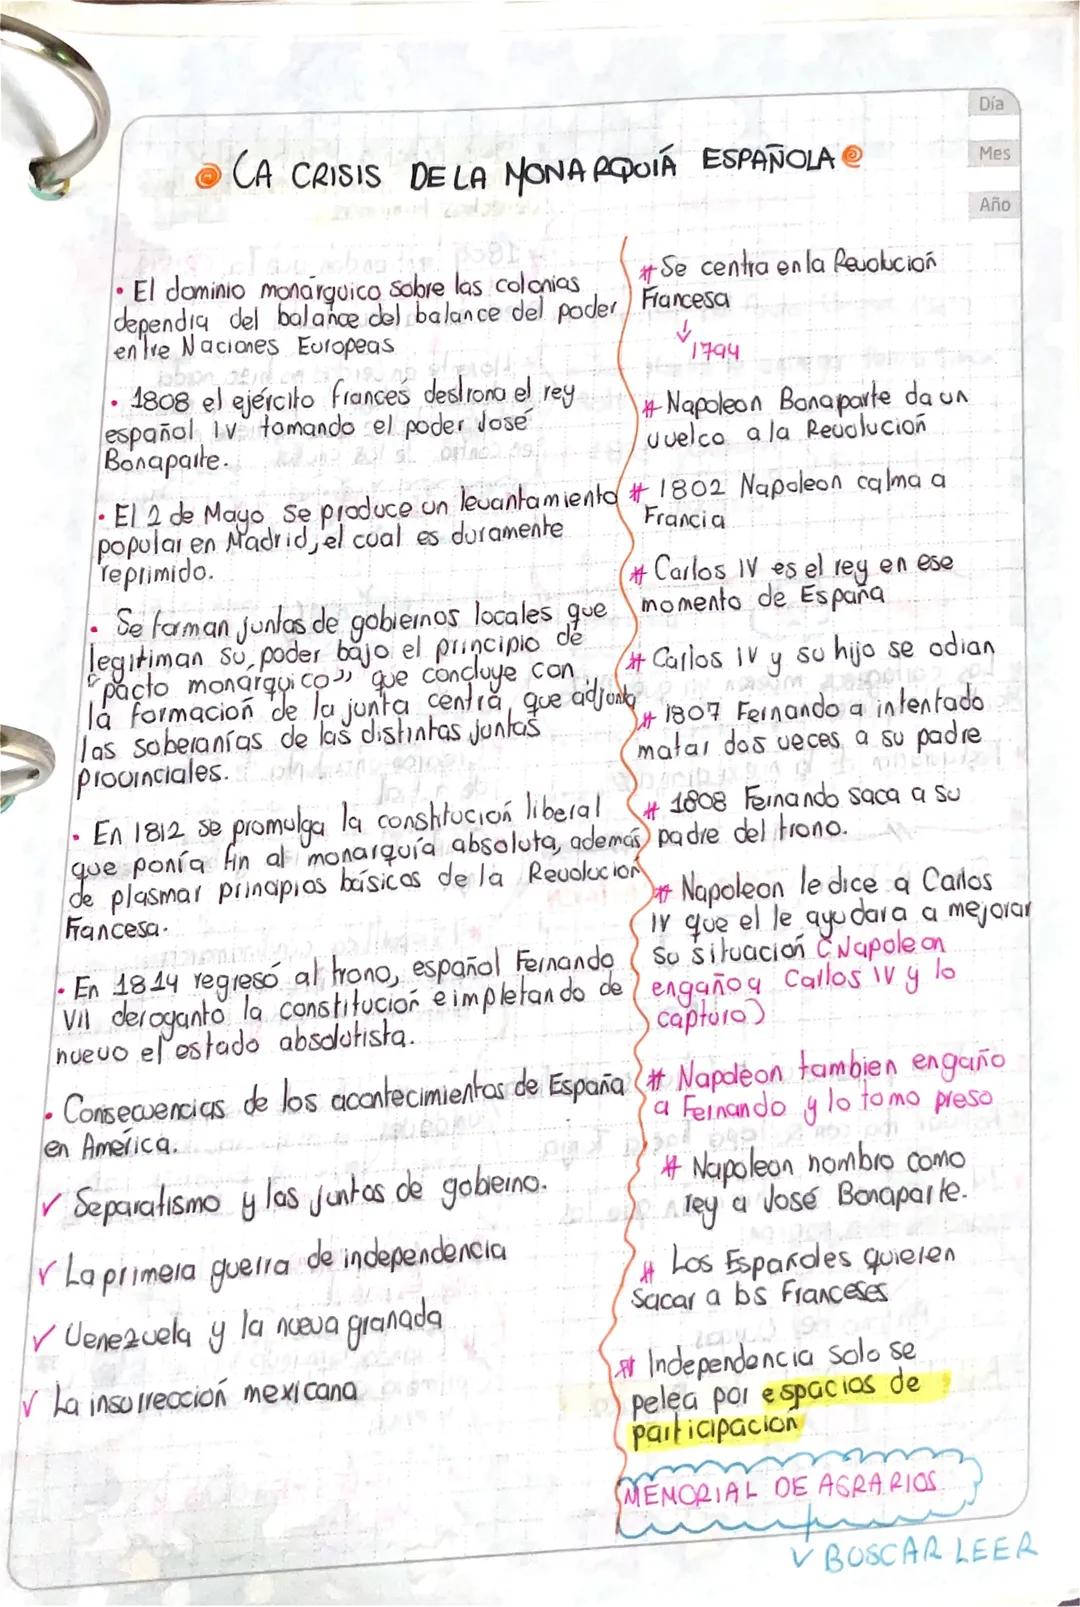 LA CRISIS DE LA MONARQUIÁ ESPAÑOLA
Día
Mes
Año
• El dominio monárquico sobre las colonias
dependia del balance del balance del poder
entre Naciones Europeas
• 1808 el ejército francés destrona el rey
español IV tomando el poder José
Bonaparte.
• El 2 de Mayo se produce un levantamiento
popular en Madrid, el cual es duramente
reprimido.
• Se forman juntas de gobiernos locales que
legitiman su poder bajo el principio de
"pacto monarquico" que concluye con
la formación de la junta centra, que adjunta
las soberanías de las distintas juntas
provinciales.
• En 1812 se promulga la constitución liberal
que ponía fin al monarquía absoluta, además
de plasmar principios básicos de la Revolución
Francesa.
• En 1814 regresó al trono, español Fernando
VII deroganto la constitución e impletando de
nuevo el estado absolutista.
• Consecuencias de los acontecimientos de España
en América.
✓ Separatismo y las juntas de gobierno.
✓ La primera guerra de independencia
✓ Venezuela y la nueva granada
✓ La insurrección mexicana
# Se centra en la Revolución
Francesa
↓
1794
# Napoleon Bonaparte da un
vuelco a la Revolución
# 1802 Napoleon calma a
Francia
# Carlos IV es el rey en ese
momento de España
# Carlos IV y su hijo se odian
# 1807 Fernando a intentado
matar dos veces a su padre
# 1808 Fernando saca a su
padre del trono.
# Napoleon le dice a Carlos
IV que el le ayudara a mejorar
su situación (Napoleon
engaño a Carlos IV y lo
captura)
# Napoleon tambien engaño
a Fernando y lo tomo preso
# Napoleon nombro como
rey a José Bonaparte.
# Los Españoles quieren
sacar a los Franceses
# Independencia solo se
pelea por espacios de
participación
MEMORIAL DE AGRARIOS
↓ BUSCAR LEER